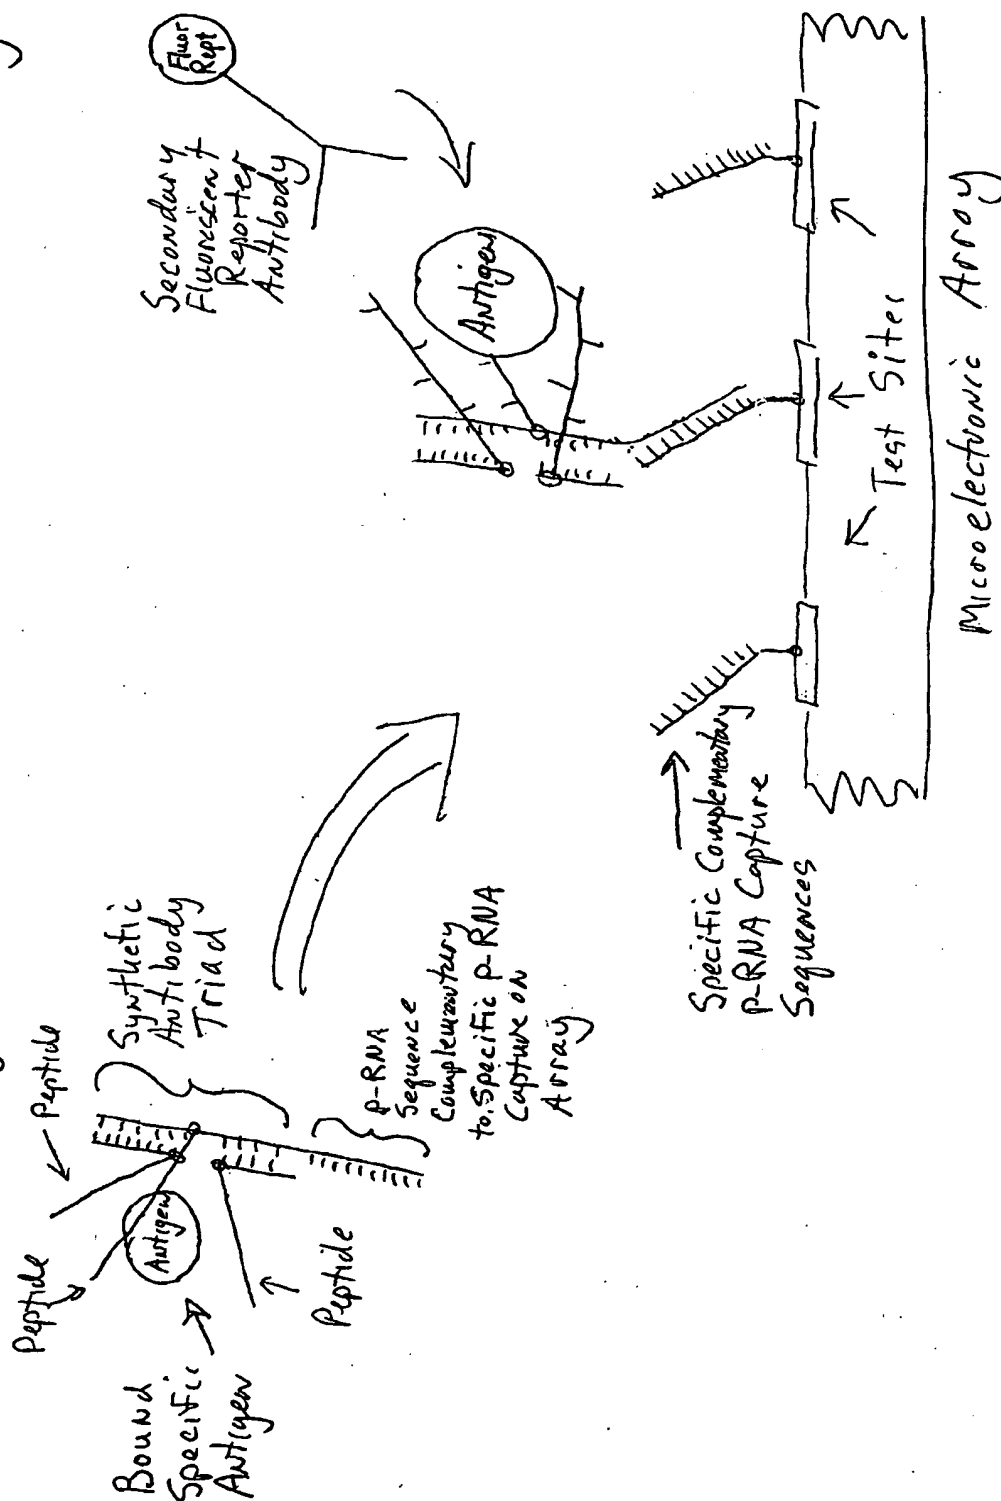 Peptide
Peptide
Synthetic
Antibody
Triad
Antigen
Bound
Specific
Antigen
Peptide
p-RNA
Sequence
Complementary
to Specific p-RNA
Capture on
Array
Secondary
Fluoriscent
Reporter
Antibody
Fluor
Rept
Antigen
Specific Complementary
p-RNA Capture
Sequences
Test Sites
Microelectronic Array